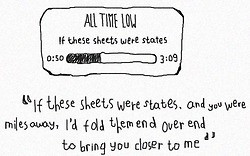 ALL TIME LOW
If these sheets were states
0:50 3:09
"If these sheets were states, and you were
miles away, I'd fold them end over end
to bring you closer to me"